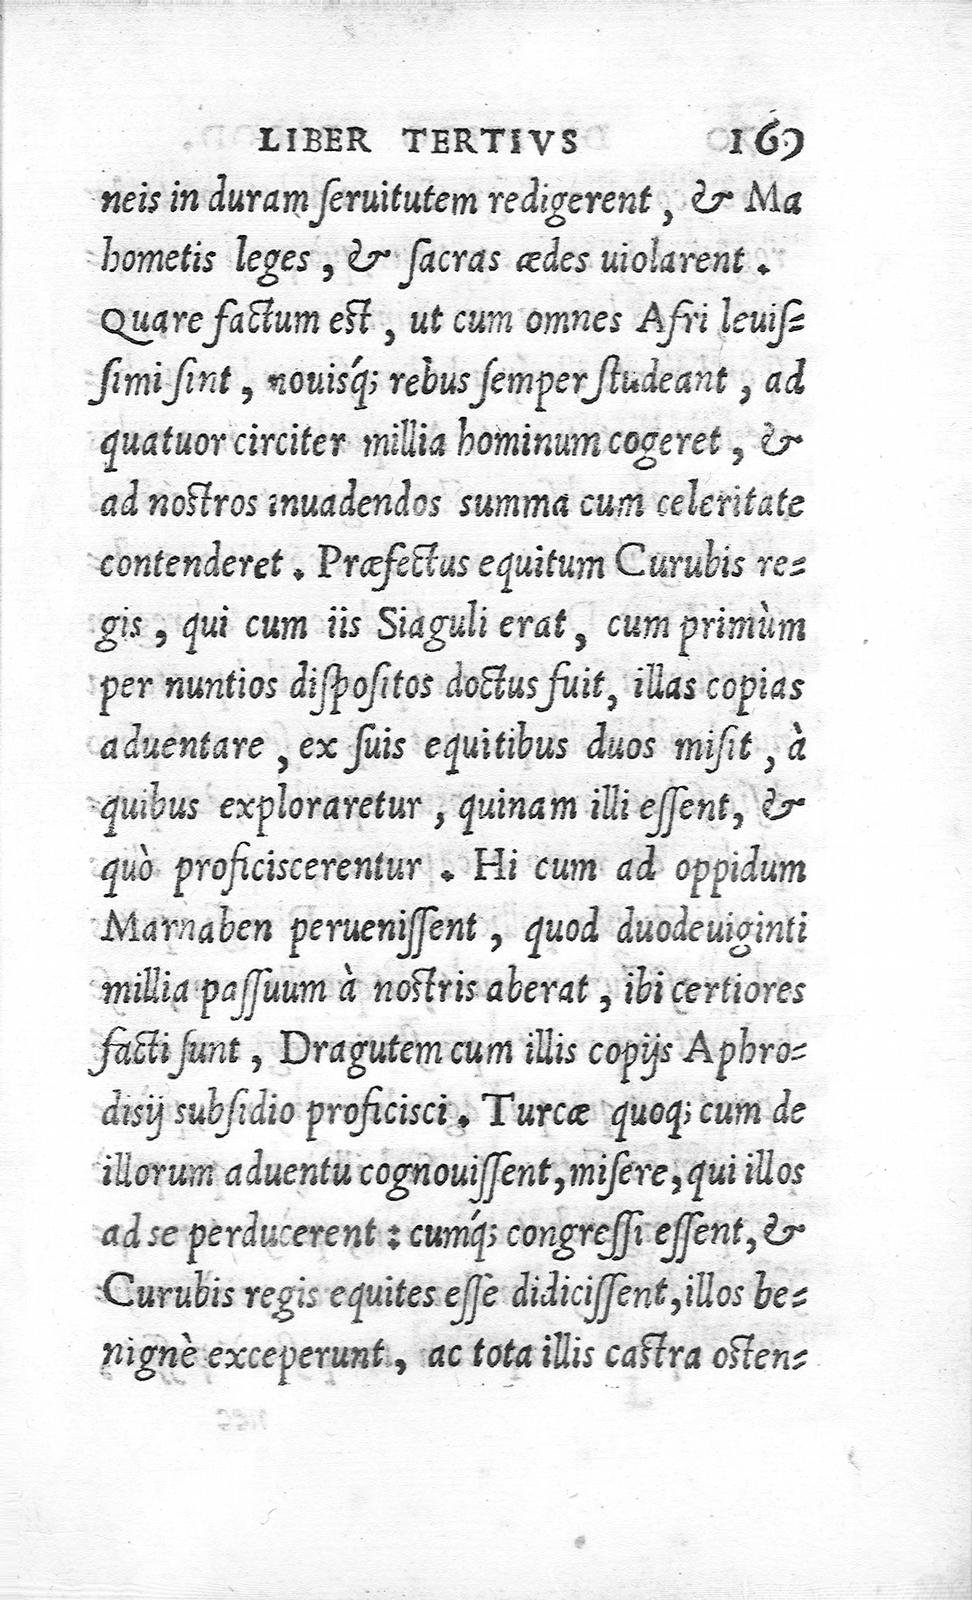 LIBER TERTIVS 169
neis in duram ſeruitutem redigerent, & Ma
hometis leges, & ſacras ædes uiolarent.
Quare factum eſt, ut cum omnes Afri leuiſ=
ſimi ſint, nouisq́; rebus ſemper ſtudeant, ad
quatuor circiter millia hominum cogeret, &
ad noſtros inuadendos summa cum celeritate
contenderet. Præfectus equitum Curubis re=
gis, qui cum iis Siaguli erat, cum primùm
per nuntios diſpoſitos doctus fuit, illas copias
aduentare, ex ſuis equitibus duos miſit, à
quibus exploraretur, quinam illi eſſent, &
quò proficiscerentur. Hi cum ad oppidum
Marnaben perueniſſent, quod duodeuiginti
millia paſſuum à noſtris aberat, ibi certiores
facti ſunt, Dragutem cum illis copijs Aphro=
disij subſidio proficisci. Turcæ quoq; cum de
illorum aduentu cognouiſſent, miſere, qui illos
ad se perducerent: cumq́; congreſſi eſſent, &
Curubis regis equites eſſe didiciſſent, illos be=
nignè exceperunt, ac tota illis caſtra oſten=